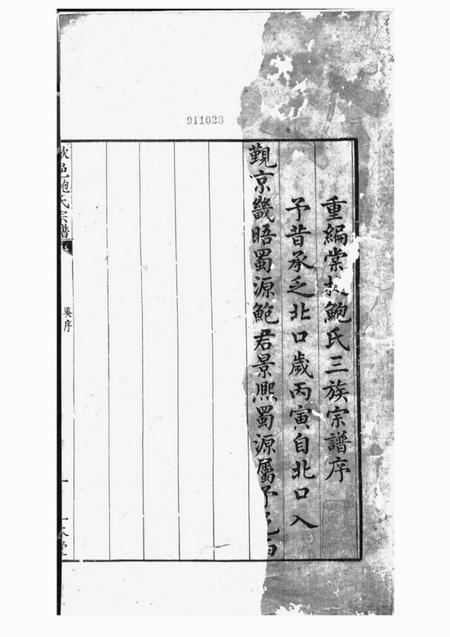 911023
重編棠樾鮑氏三族宗譜序
予昔承乏北口歲丙寅自北口入
覲京畿晤蜀源鮑君景熈蜀源屬予邑西
歙邑鮑氏宗譜
吳序
一